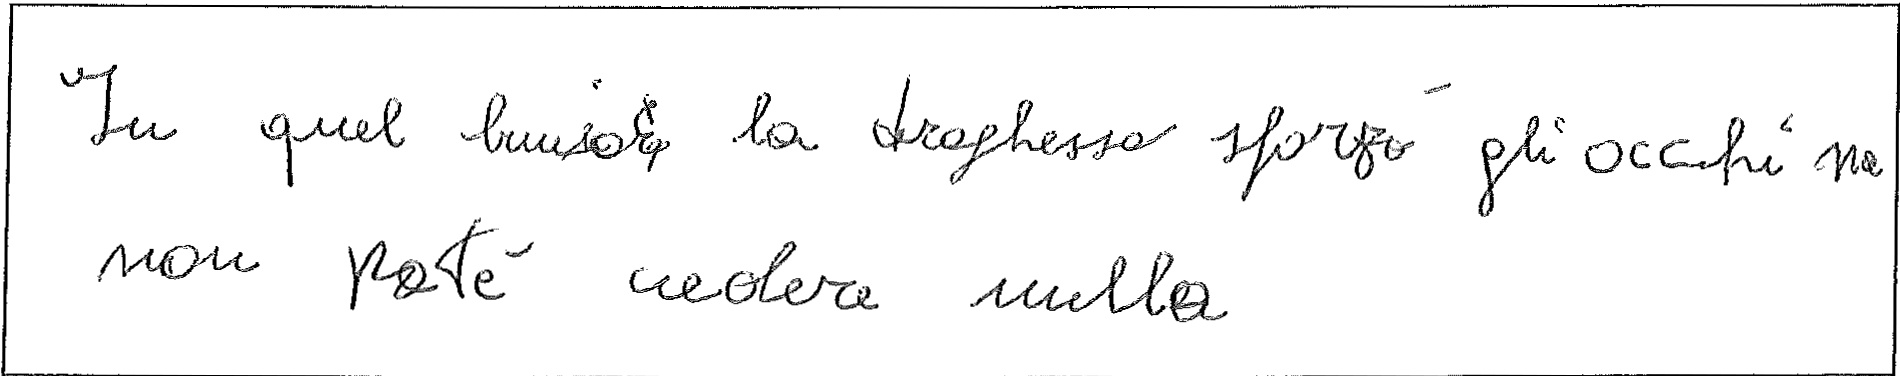 In quel la draghessa sforzò gli occhi ma
non poté vedere nulla